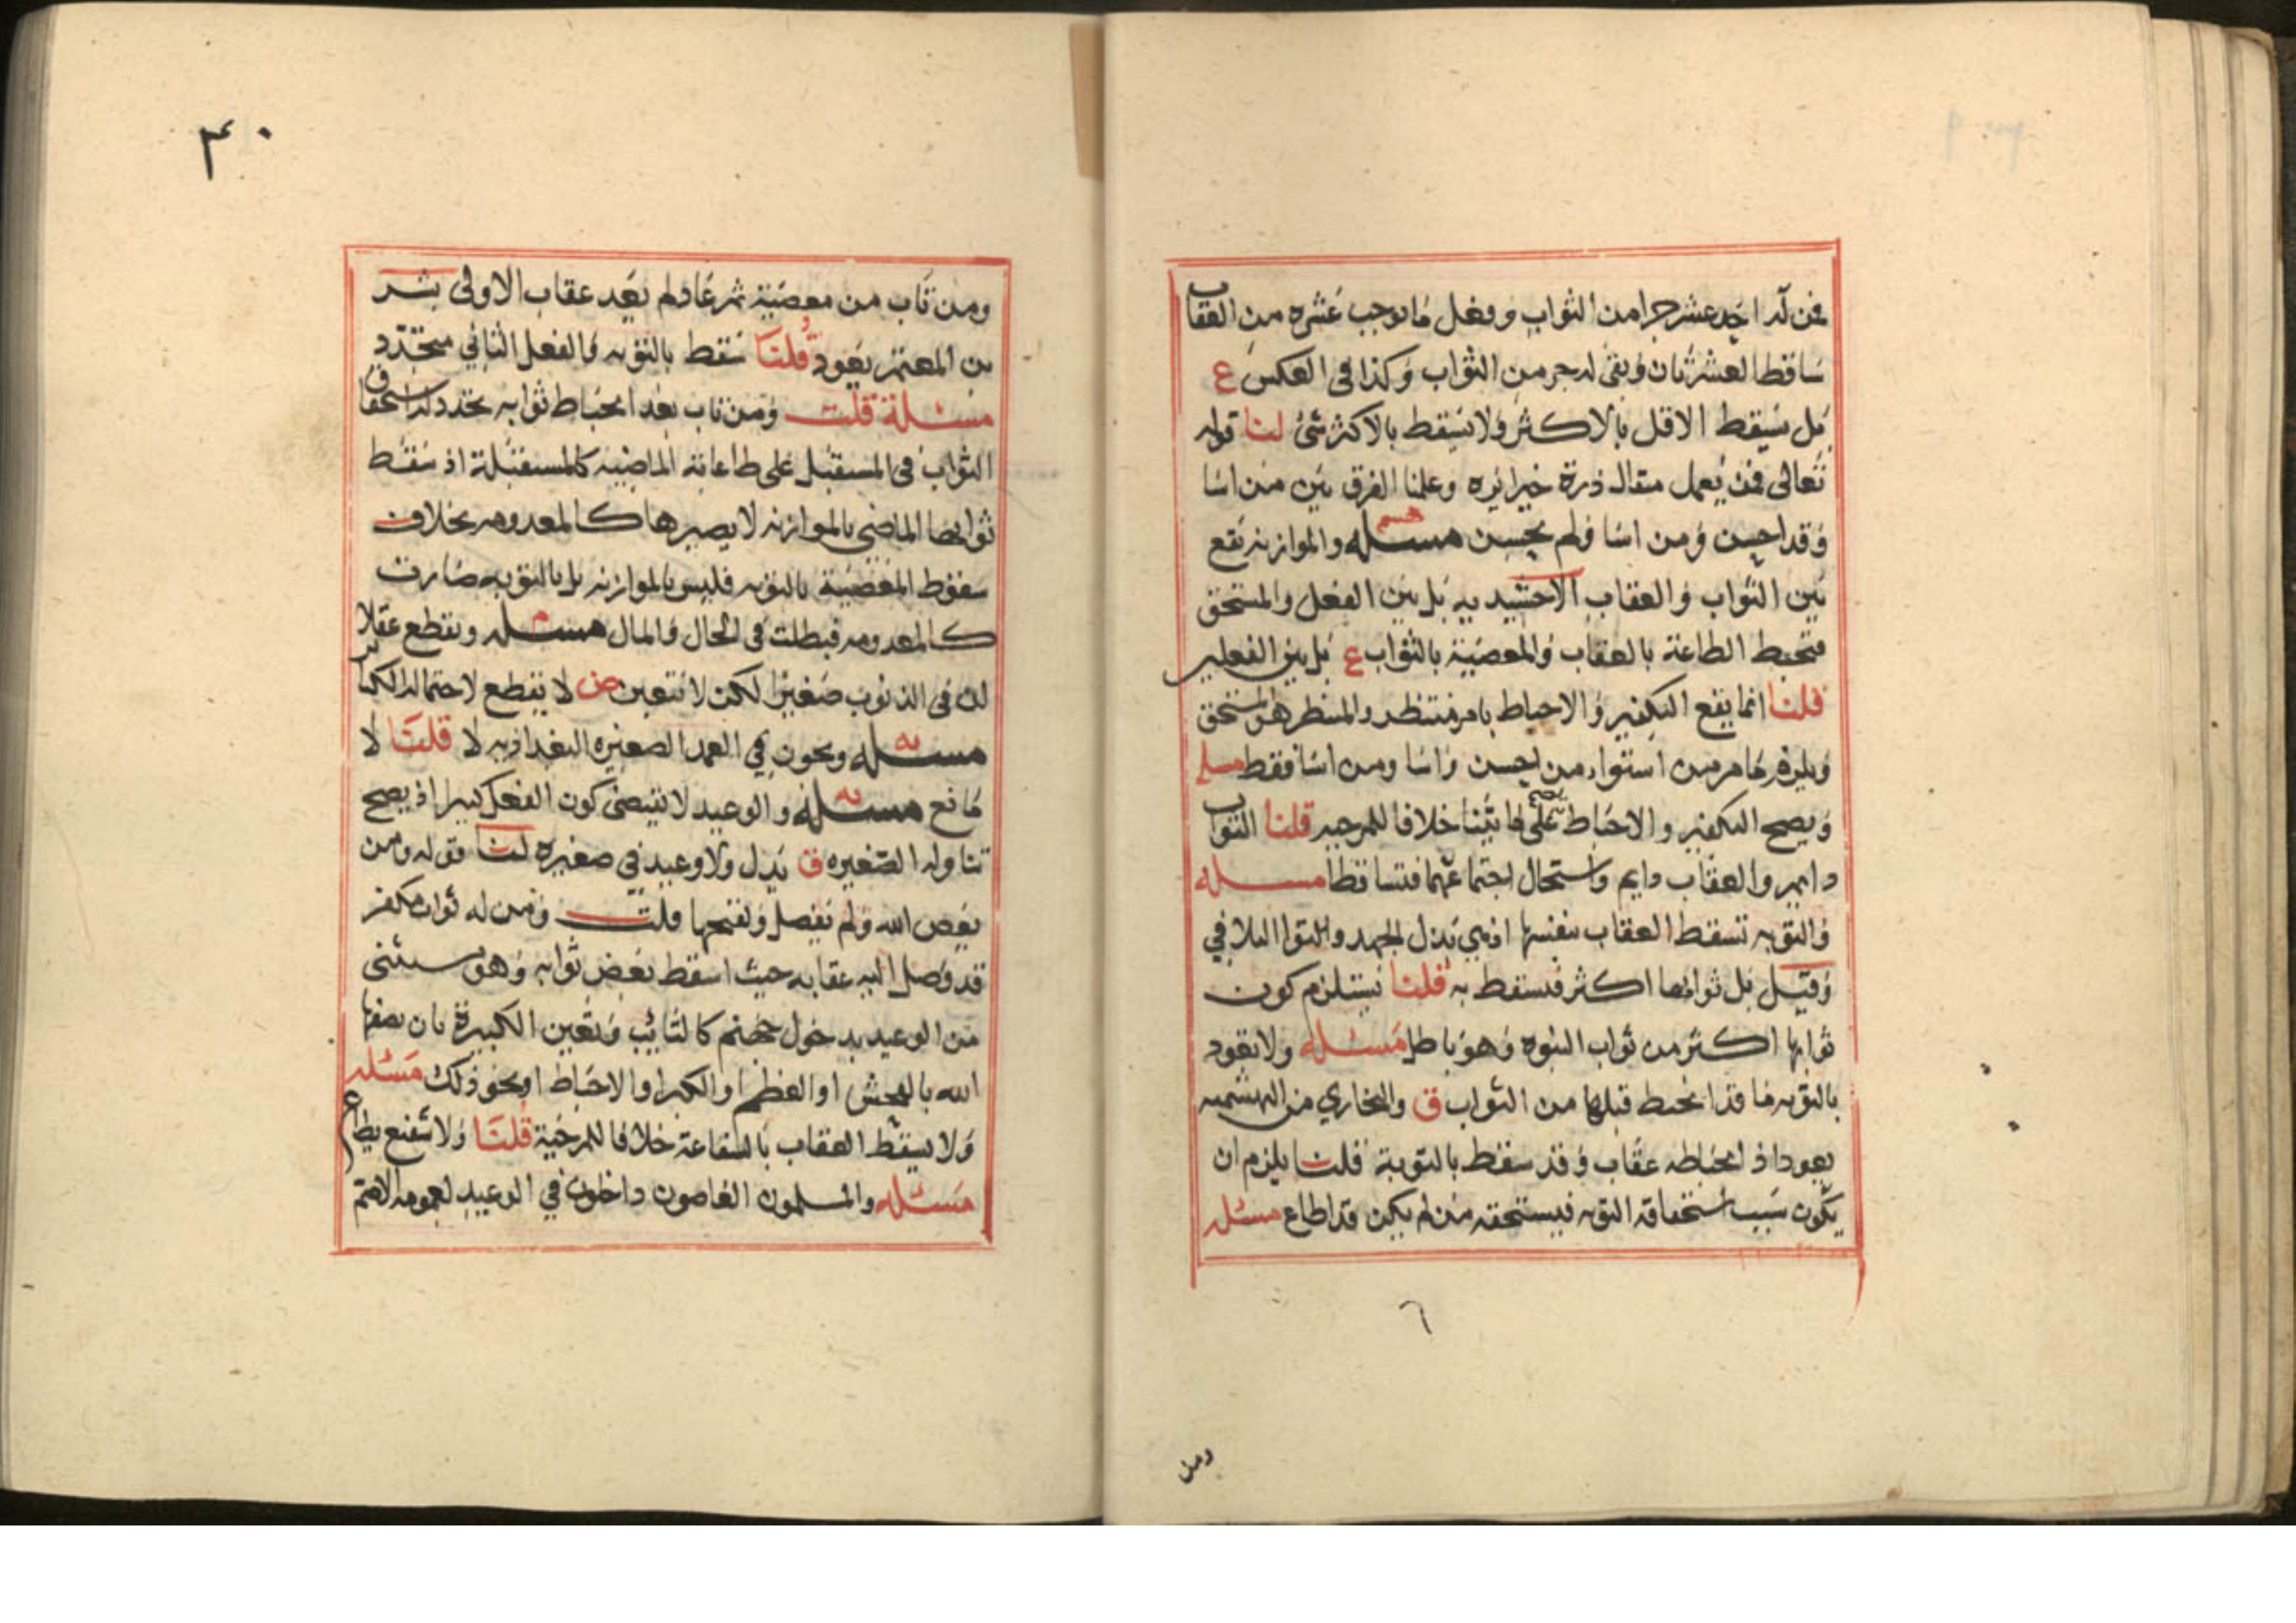 فمن له احد عشر جزا من الثواب وفعل ما يوجب عشره من العقاب
تساقطا العشرتان وبقى له جز من الثواب وكذا فى العكس ع
بل يسقط الاقل بالاكثر ولا يسقط بالاكثر شئ لنا قوله
تعالى فمن يعمل مثقال ذرة خيرا يره وعلمنا الفرق بين من اسا
وقد احسن ومن اسا ولم يحسن مسئله هشم والموازنه تقع
بين الثواب والعقاب الاخشيديه بل بين الفعل والمستحق
فتحبط الطاعة بالعقاب والمعصية بالثواب ع بل بين الفعلين
قلنا انما يقع التكفير والاحباط بامر منتظر والمنتظر هو المستحق
ويلزم ما مر من استوا من احسن واسا ومن اسا فقط مسله
ويصح التكفير والاحباط على ما بيّنا خلافا للمرجيه قلنا الثواب
دايم والعقاب دايم واستحال اجتماعهما فتساقطا مسله
والتوبه تسقط العقاب بنفسها اذ هي بذل الجهد فى التلافي
وقيل بل ثوابها اكثر فيسقط به قلنا يستلزم كون
ثوابها اكثر من ثواب النبوه وهو باطل مسئله ولا يعود
بالتوبه ما قد انحبط قبلها من الثواب ق والبخاري من البهشميه
يعود اذ انحباطه عقاب وقد سقط بالتوبة قلنا يلزم ان
يكون سبب استحقاقه التوبه فيستحقه من لم يكن قد اطاع مسئله
٦
ومن
٤٠
ومن تاب من معصية ثم عاد لم يعد عقاب الاولى بشر
بن المعتمر يعود قلنا سقط بالتوبه والفعل الثاني متجدد
مسئلة قلت ومن تاب بعد انحباط ثوابه تجدد له استحقاق
الثواب فى المستقبل على طاعاته الماضيه كالمستقبلة اذ سقط
ثوابها الماضي بالموازنه لا يصيرها كالمعدومه بخلاف
سقوط المعصية بالتوبه فليس بالموازنه بل بالتوبه صارت
كالمعدومه فبطلت فى الحال والمال مسئله م ويقطع عقلا
ان فى الذنوب صغيرا لكن لا تتعين ض لا يقطع لاحتمالها الكبر
مسئله يه ويجوز في العمد الصغيره البغداديه لا قلنا لا
مانع مسئله يه والوعيد لا يقتضى كون الفعل كبيرا اذ يصح
تناوله الصغيره ق يدل ولا وعيد في صغيره لنا قوله ومن
يعص الله ولم يفصل قلت ومن له ثواب مكفر
قد وصل اليه عقابه حيث اسقط بعض ثوابه وهو مستثنى
من الوعيد بدخول جهنم كالتائب وتتعين الكبيرة بان يصفها
الله بالفحش او العظم او الكبر او الاحباط او نحو ذلك مسئله
ولا يسقط العقاب بالشفاعة خلافا للمرجية قلنا ولا شفيع يطاع
مسئله والمسلمون العاصون داخلون في الوعيد لعمومه الاصم